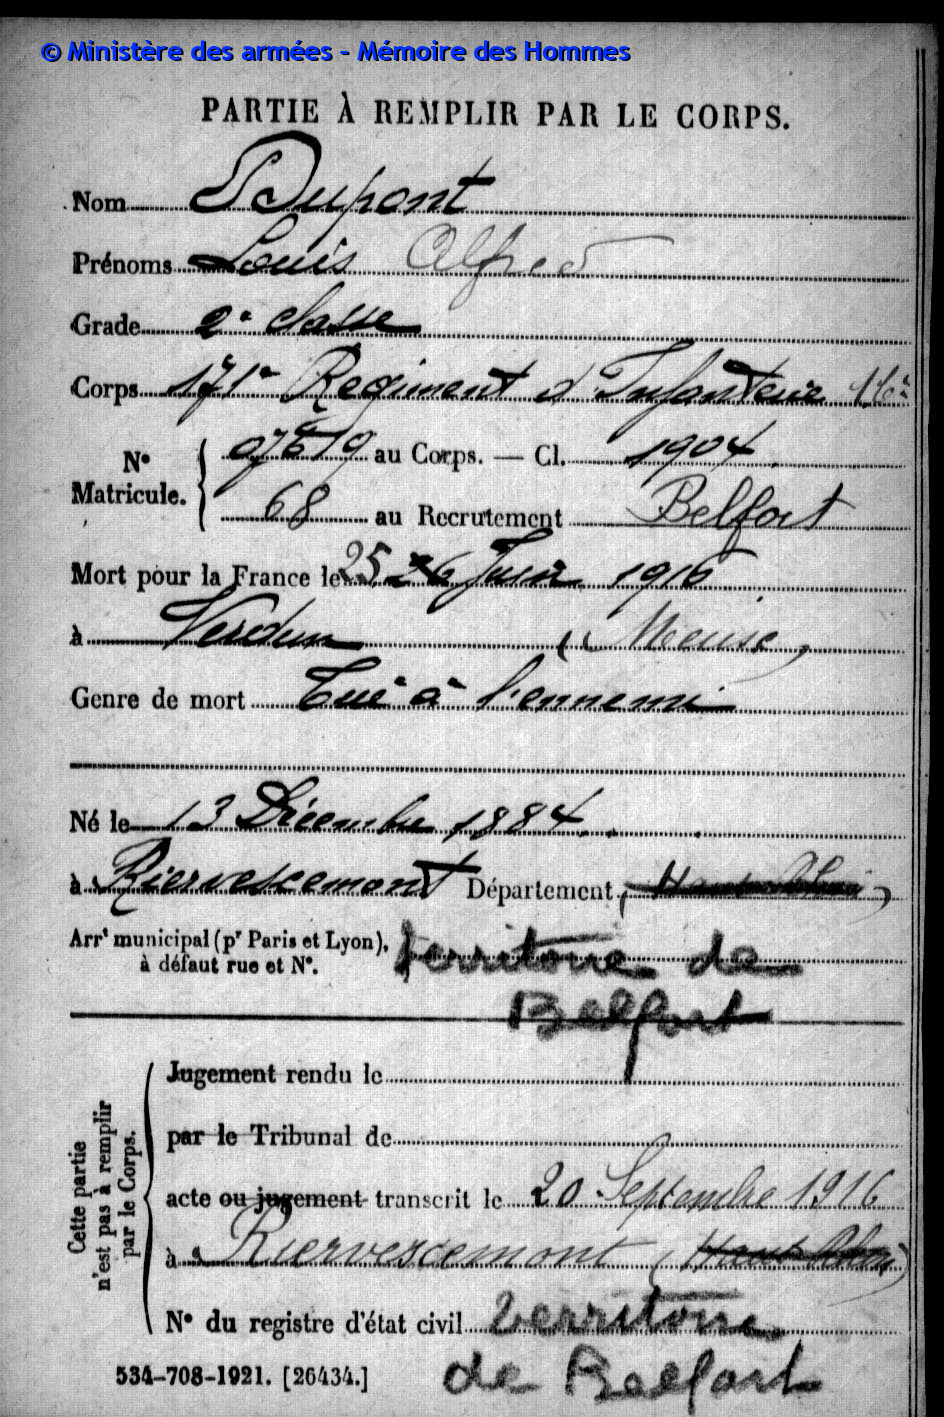 © Ministère des armées - Mémoire des Hommes
PARTIE À REMPLIR PAR LE CORPS.
Nom Dupont
Prénoms Louis Alfred
Grade 2e classe
Corps 171e Regiment d'Infanterie
No Matricule. au Corps. — Cl. 1904
68 au Recrutement Belfort
Mort pour la France le 25 26 Juin 1916
à Verdun (Meuse)
Genre de mort Tué à l'ennemi
Né le 13 Décembre 1884
à Riervescemont Département (Haut Rhin)
Arrt municipal (pr Paris et Lyon), à défaut rue et No. territoire de
Belfort
Cette partie n'est pas à remplir par le Corps.
Jugement rendu le
par le Tribunal de
acte ou jugement transcrit le 20 Septembre 1916
à Riervescemont (Haut Rhin)
No du registre d'état civil territoire
de Belfort
534-708-1921. [26434.]